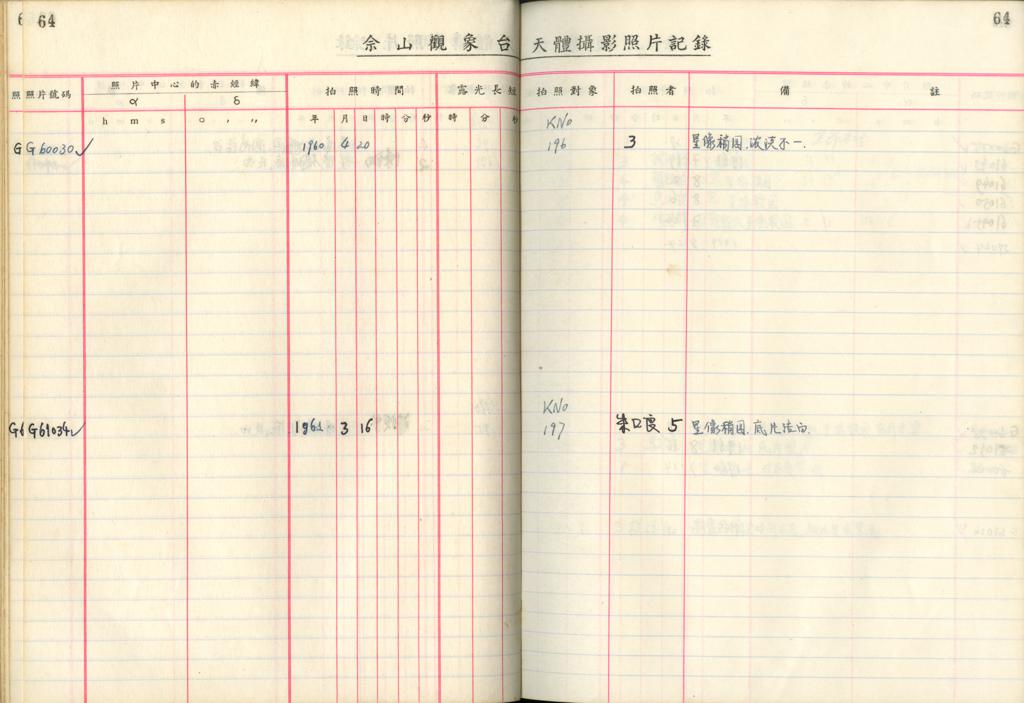 64
64
佘山觀象台天體攝影照片記錄
照片號碼 照片中心的赤經緯 拍照時間 露光長短 拍照對象 拍照者 備註
α δ
h m s ° ′ ″ 年 月 日 時 分 秒 時 分 秒
KNo
G60030✓ 1960 4 20 196 3 星像橢圓,不一.
KNo
G61034✓ 196 3 16 197 5 星像橢圓,底片